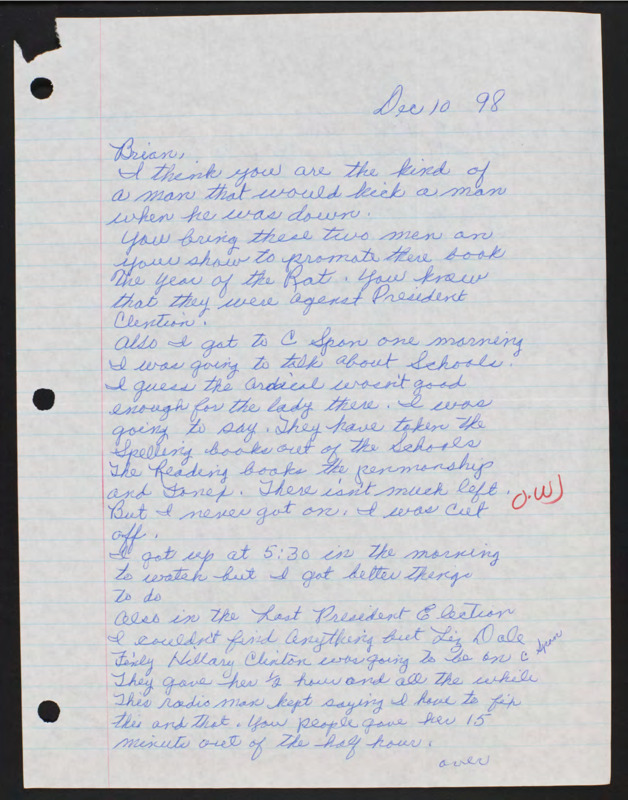 Dec 10 98
Brian,
I think you are the kind of
a man that would kick a man
when he was down.
You bring these two men on
your show to promote there book
The Year of the Rat. You know
that they were agenst President
Clention.
Also I got to C Span one morning
I was going to talk about Schools.
I guess the ardical wasn't good
enough for the lady there. I was
going to say. They have taken the
Spelling books out of the Schools
The Reading books the penmonship
and. There isn't much left.
O.W)
But I never got on. I was cut
off.
I got up at 5:30 in the morning
to watch but I got better things
to do
Also in the Last President Election
I couldn't find anything but Liz Dole
Finly Hillary Clinton was going to be on C Span
They gave her ½ hour and all the while
This radio man kept saying I have to fix
this and that. You people gave her 15
minute out of the half hour.
over